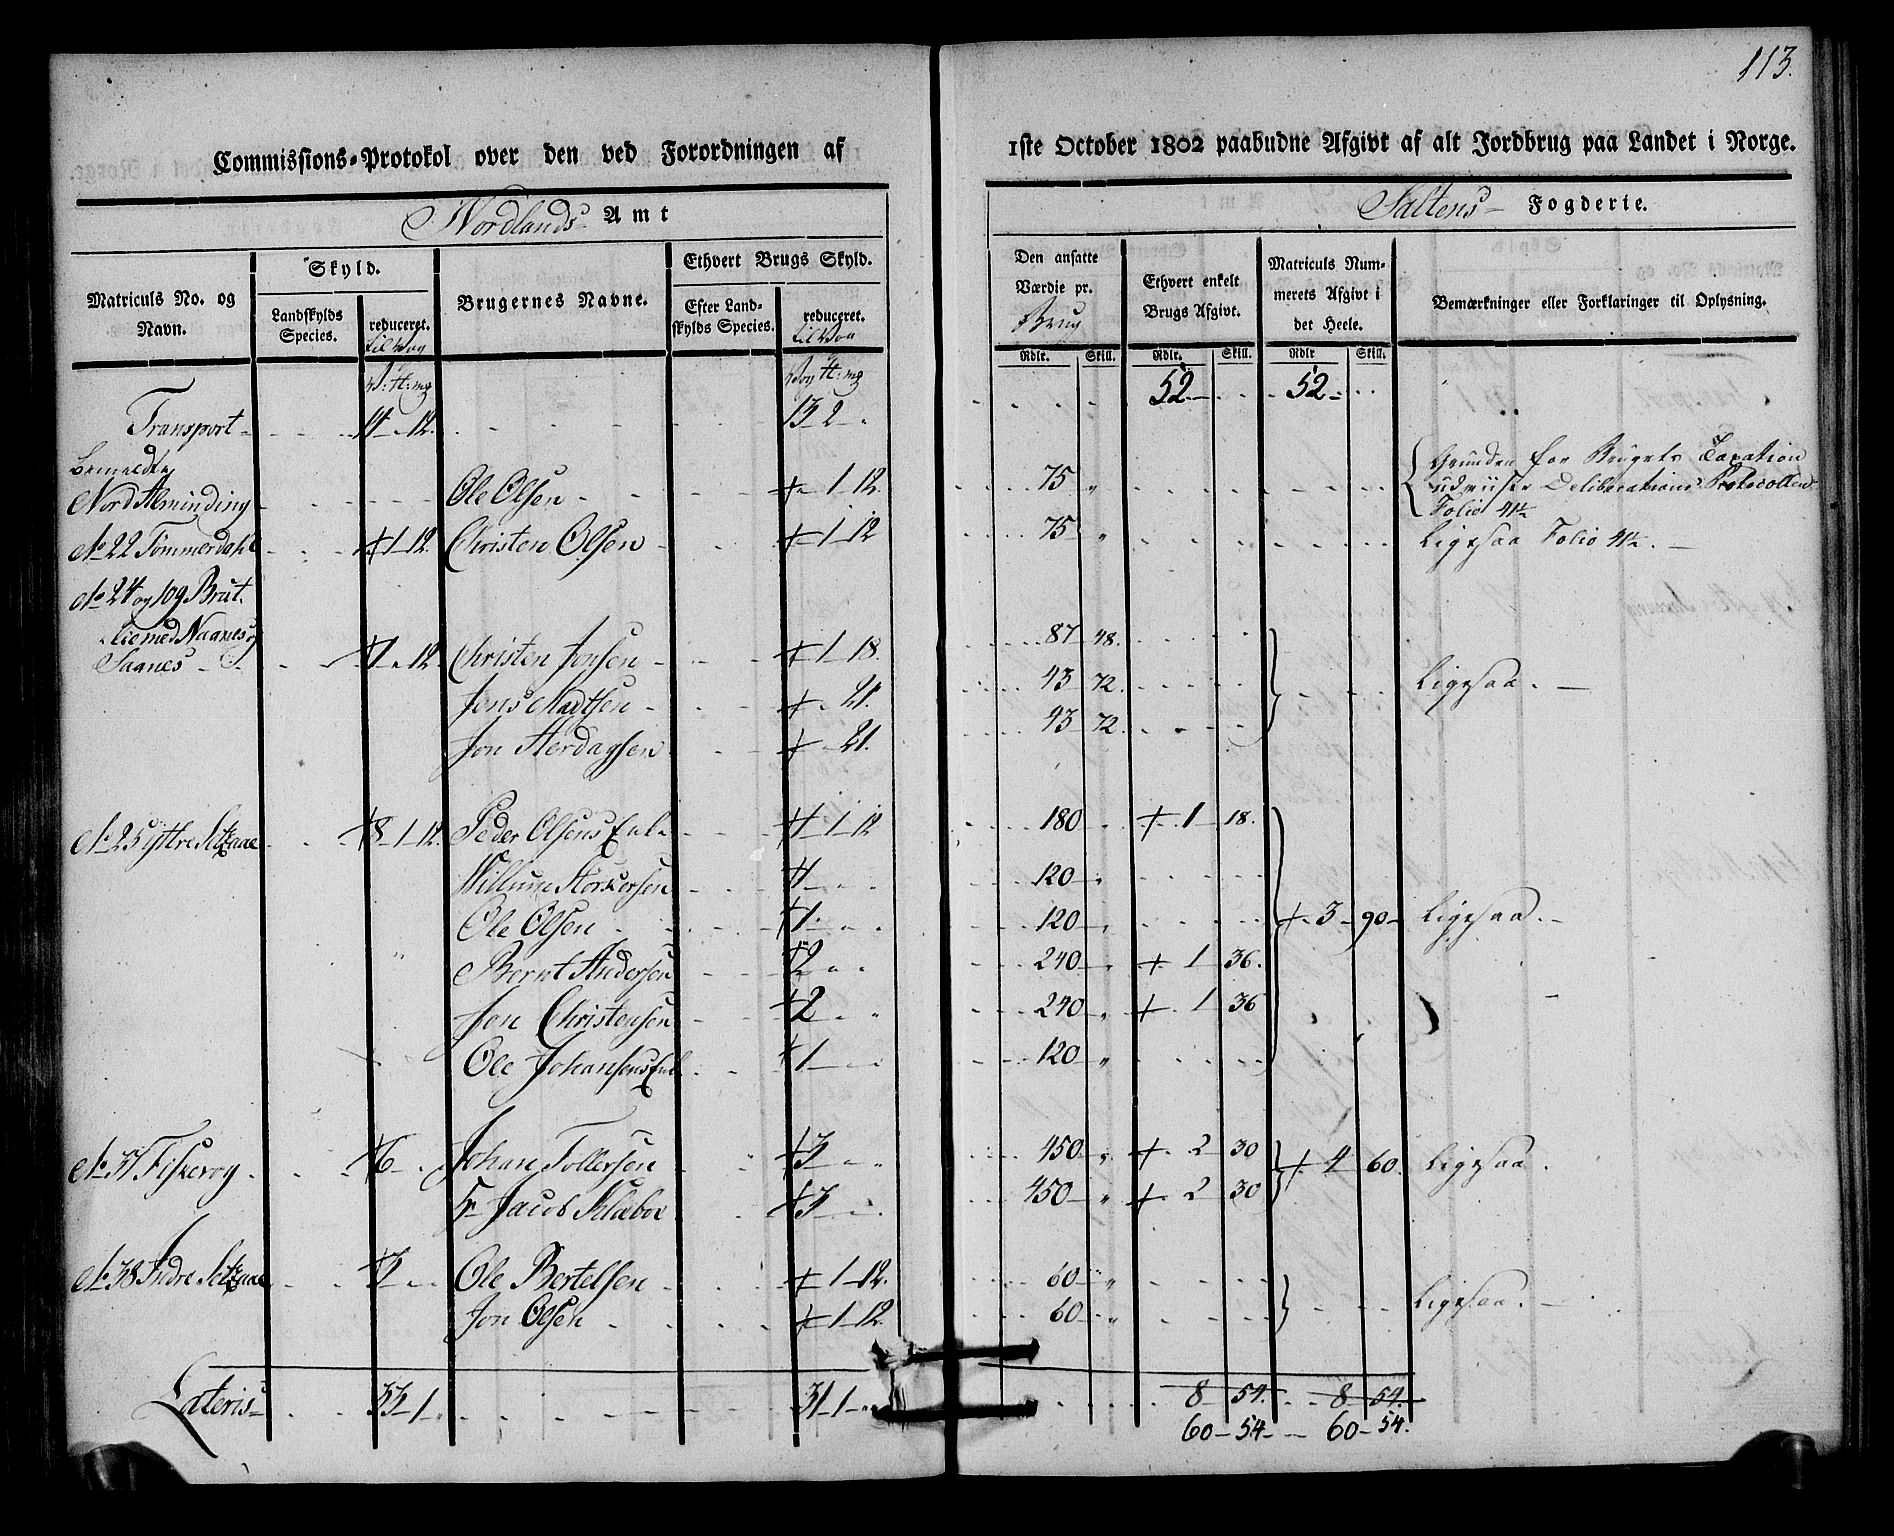 113.
Commissions-Protokol over den ved Forordningen af 1ste October 1802 paabudne Afgivt af alt Jordbrug paa Landet i Norge.
Nordlands Amt
Saltens Fogderie.
Matriculs No. og Navn.
Skyld.
Landskylds Species.
reduceret. til Vog
Brugernes Navne.
Ethvert Brugs Skyld.
Efter Landskylds Species.
reduceret. til Vog
Den ansatte Værdie pr. Brug
Rdlr. Skill.
Ethvert enkelt Brugs Afgivt.
Rdlr. Skill.
Matriculs Nummerets Afgivt i det Heele.
Rdlr Skill.
Bemærkninger eller Forklaringer til Oplysning.
V: ℔: mk Vog ℔: mk
Transport 14 - 12. 13 2 - 52 - 52 -
bemeldte
Nord Alminding Ole Olsen + 1 12. 75 " Grunden for Brugets Taxation
udviiser Deliberations Protocollens
Folio 41½
No 22 Tømmerdahl + 1 12. Christen Olsen + 1 12 75 " Ligesaa Folio 41½.
No 24 og 109 Brut-
lie med Naanes og
Saanes + 1 - 12 Christen Jensen + 1 18. 87 48. Ligesaa.
Jens Madtsen + - 21. 43 72.
Jon Herdagsen + - 21. 43 72.
No 25 yttre Setzaae + 8 - 1 - 12. Peder Olsens Enke + 1 - 1 12 180 + 1 18.
Willum Storkersen + 1 120 "
Ole Olsen + 1 120 + 3 - 90 - Ligesaa.
Bernt Andersen + 2 240 + 1 36.
Jon Christensen + 2 240 " + 1 36
Ole Johansens Enke + 1 120 "
No 37 Fiskevog + 6 Johan Tollersen + 3 450 " + 2 30 + 4 60. Ligesaa.
Hr Jacob Klæboe + 3 450 " + 2 30
No 38 Indre Setzaae + 3 Ole Bertelsen + 1 - 12. 60 " Ligesaa.
Jon Olsen + 1 - 12. 60 "
Lateris 33 - 1 31 1 8 54. 8 54.
60 - 54 - 60 - 54.